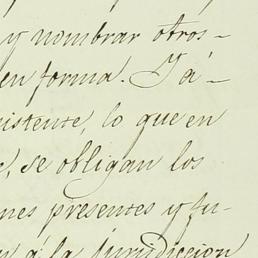 y nombrar otros-
en forma. Y á-
sistente, lo que en
, se obligan los
nes presentes y fu-
á la jurisdiccion